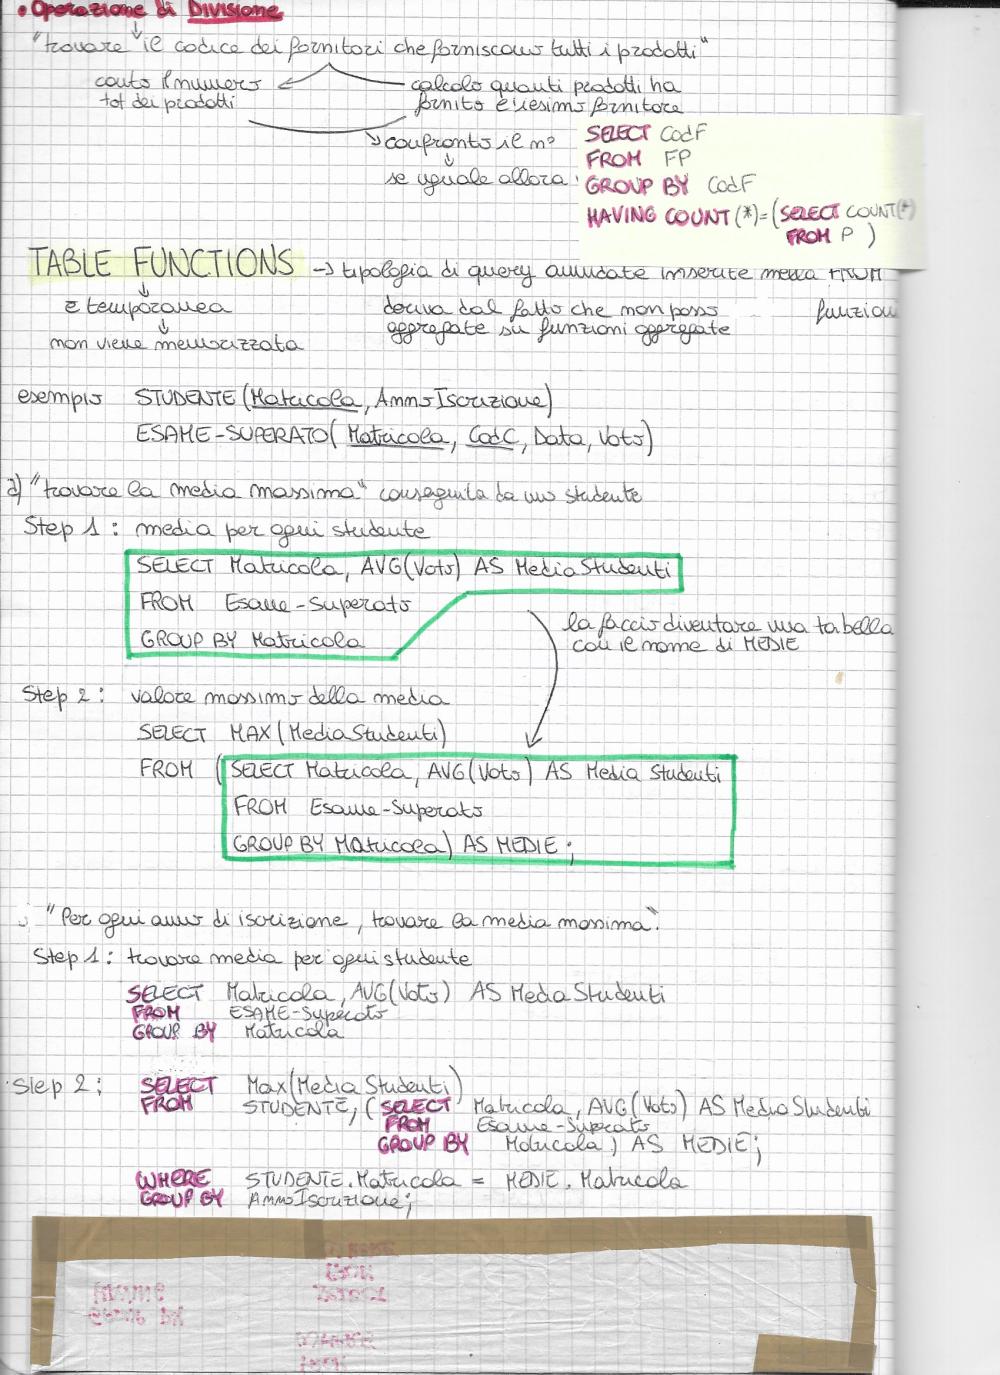 • Operazione di Divisione
"trovare il codice dei fornitori che forniscono tutti i prodotti"
conto il numero
tot dei prodotti
calcolo quanti prodotti ha
fornito l'iesimo fornitore
confronto il n°
se uguale allora :
SELECT CodF
FROM FP
GROUP BY CodF
HAVING COUNT (*) = (SELECT COUNT(*)
FROM P )
TABLE FUNCTIONS → tipologia di query annidate inserite nella FROM
è temporanea
non viene memorizzata
deriva dal fatto che non posso funzioni
aggregate su funzioni aggregate
esempio STUDENTE (Matricola, AnnoIscrizione)
ESAME-SUPERATO( Matricola, CodC, Data, Voto)
"trovare la media massima" conseguita da uno studente
Step 1 : media per ogni studente
SELECT Matricola, AVG(Voto) AS MediaStudenti
FROM Esame-Superato
GROUP BY Matricola
la faccio diventare una tabella
con il nome di MEDIE
Step 2 : valore massimo della media
SELECT MAX (MediaStudenti)
FROM (SELECT Matricola, AVG(Voto) AS Media Studenti
FROM Esame-Superato
GROUP BY Matricola) AS MEDIE ;
"Per ogni anno di iscrizione, trovare la media massima".
Step 1 : trovare media per ogni studente
SELECT Matricola, AVG(Voto) AS MediaStudenti
FROM ESAME-Superato
GROUP BY Matricola
Step 2 ; SELECT Max(MediaStudenti)
FROM STUDENTE, (SELECT Matricola, AVG(Voto) AS MediaStudenti
FROM Esame-Superato
GROUP BY Matricola) AS MEDIE;
WHERE STUDENTE.Matricola = MEDIE.Matricola
GROUP BY AnnoIscrizione;